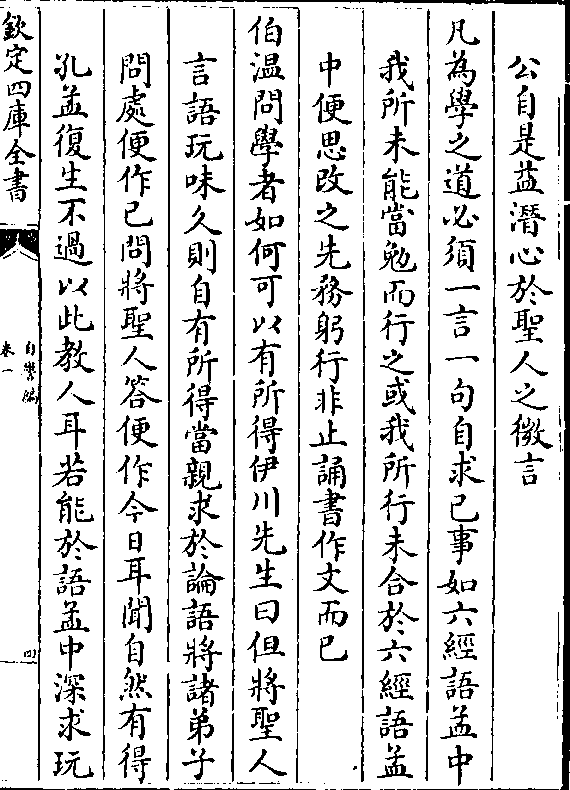 公自是益潛心於聖人之微言
凡為學之道必須一言一句自求已事如六經語孟中
我所未能當勉而行之或我所行未合於六經語孟
中便思改之先務躬行非止誦書作文而已
伯温問學者如何可以有所得伊川先生曰但將聖人
言語玩味久則自有所得當親求於論語將諸弟子
問處便作已問將聖人答便作今日耳聞自然有得
孔孟復生不過以此教人耳若能於語孟中深求玩
欽定四庫全書
自警編
卷一
四